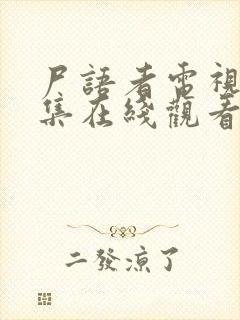 尸語者電視
集在綫觀看
二發涼了